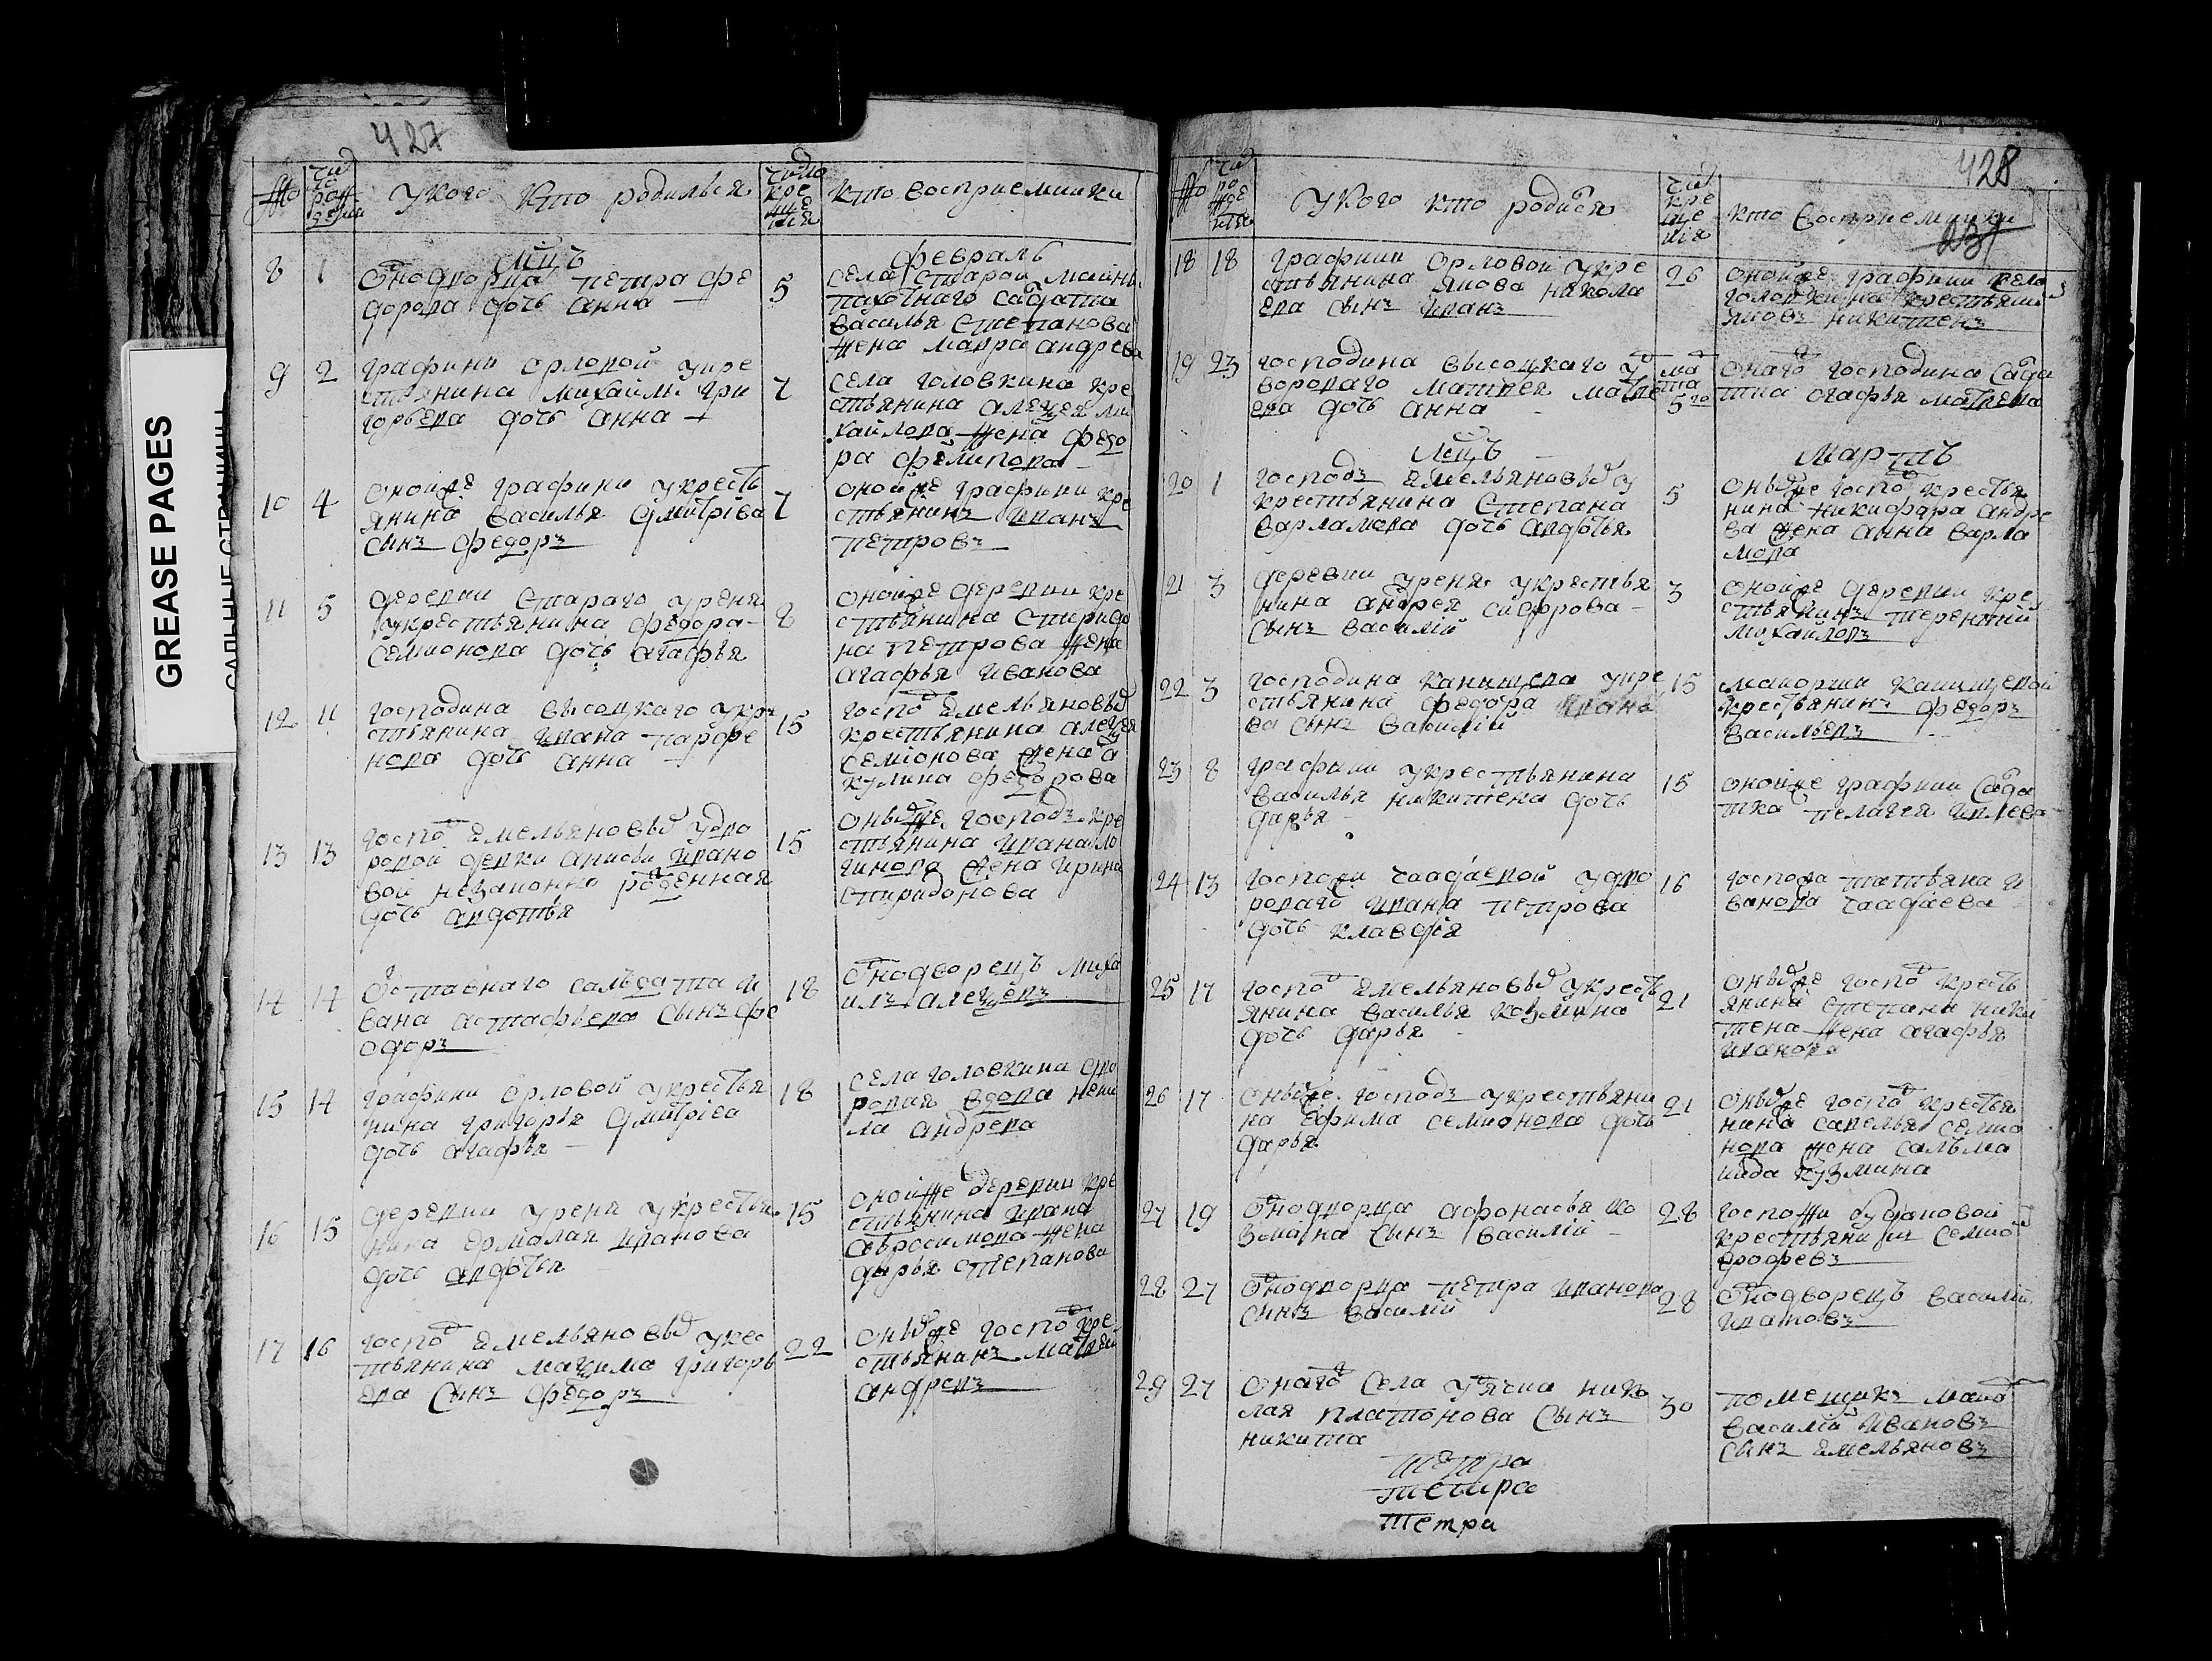 GREASE PAGES
427
№
число рожде
у кого кто родилься
число креще ния
кто восприемники
мсцъ
февраль
8
1
однодворца петра фе
дорова дочь анна
5
села старой маины
пахотнаго салдата
василья степанова
жена мавра андрева
9
2
графини орловой у кре
стьянина михайлы гри
горьева дочь анна
7
села головкина кре
стьянина алеѯея ми
хайлова жена федо
ра филипова
10
4
оной же графини у кресть
янина василья дмитріева
сынъ федоръ
7
оной же графини кре
стьянинъ иванъ
петровъ
11
5
деревни стараго уреня
у крестьянина федора
семионова дочь агафья
8
оной же деревни кре
стьянина спиридо
на петрова жена
агафья иванова
12
11
господина высоцкаго у кре
стьянина ивана парфе
нова дочь анна
15
господ емельяновыд
крестьянина алеѯея
семіонова жена а
кулина федорова
13
13
господ емельяновыд у дво
ровой девки анисьи ивано
вой незаконно рожденная
дочь авдотья
15
оныхже господъ кре
стьянина ивана ло
гинова жена ирина
спиридонова
14
14
отставнаго салъдата и
вана астафьева сынъ фе
одоръ
18
однодворецъ миха
илъ алеѯевъ
15
14
графини орловой у крестья
нина григорья дмитріева
дочь агафья
18
села головкина дво
ровая вдова нени
ла андрева
16
15
деревни уреня у крестья
нина ермалая иванова
дочь авдотья
15
оной же деревни кре
стьянина ивана
абросимова жена
дарья степанова
17
16
господ емельяновыд у крес
тьянина маѯима григорь
ева сынъ федоръ
22
оныхже господ кре
стьянинъ матвей
андревъ
428
№
число рожде нія
у кого кто родился
число кре ще нія
кто восприемники
18
18
графини орловой у кре
стьянина якова никола
ева сынъ иванъ
26
оной же графини села
головкина крестьянин
яковъ никитенъ
19
23
господина высоцкаго у д
вороваго матвея матве
ева дочь анна
ма
рта
5го
онаго господина салда
тка агафья матвева
мсцъ
мартъ
20
1
господъ емельяновыд у
крестьянина степана
варламова дочь авдотья
5
оныхже господ крестья
нина никифора андре
ва жена анна варла
мова
21
3
деревни уреня у крестья
нина андрея сидорова
сынъ василій
3
оной же деревни кре
стьянинъ терентей
михаиловъ
22
3
господина канищева у кре
стьянина федора ивано
ва сынъ василій
15
маиорши канищевой
крестьянинъ федоръ
васильевъ
23
8
графини у крестьянина
василья никитена дочь
дарья
15
оной же графини салда
тка пелагея ивлева
24
13
госпожи чаадаевой у дво
роваго ивана петрова
дочь клавдія
16
госпожа татьяна и
ванова чаадаева
25
17
господ емельяновыд у кресть
янина василья козмина
дочь дарья
21
оныхже господ кресть
янина степана ники
тена жена агафья
иванова
26
17
оныхже господъ у крестьяни
на ефима семионова дочь
дарья
21
оныхже господ крестья
нина савелья семио
нова жена салъма
нида кузмина
27
19
однодворца афонасья ко
змина сынъ василій
28
госпожи
крестьянин семио
ерофевъ
28
27
однодворца петра иванова
сынъ василій
28
однодворецъ василій
ивановъ
29
27
онаго села ника
лая платонова сынъ
никита
30
помещикъ маио
василій ивановъ
сынъ емельяновъ
петра
петра
петра